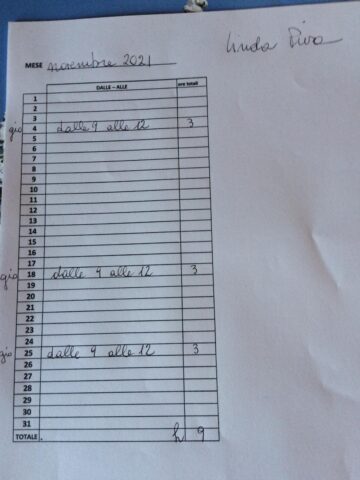 Linda Piva
MESE novembre 2021
DALLE – ALLE ore totali
1
2
3
gio 4 dalle 9 alle 12 3
5
6
7
8
9
10
11
12
13
14
15
16
17
gio 18 dalle 9 alle 12 3
19
20
21
22
23
24
gio 25 dalle 9 alle 12 3
26
27
28
29
30
31
TOTALE . h 9